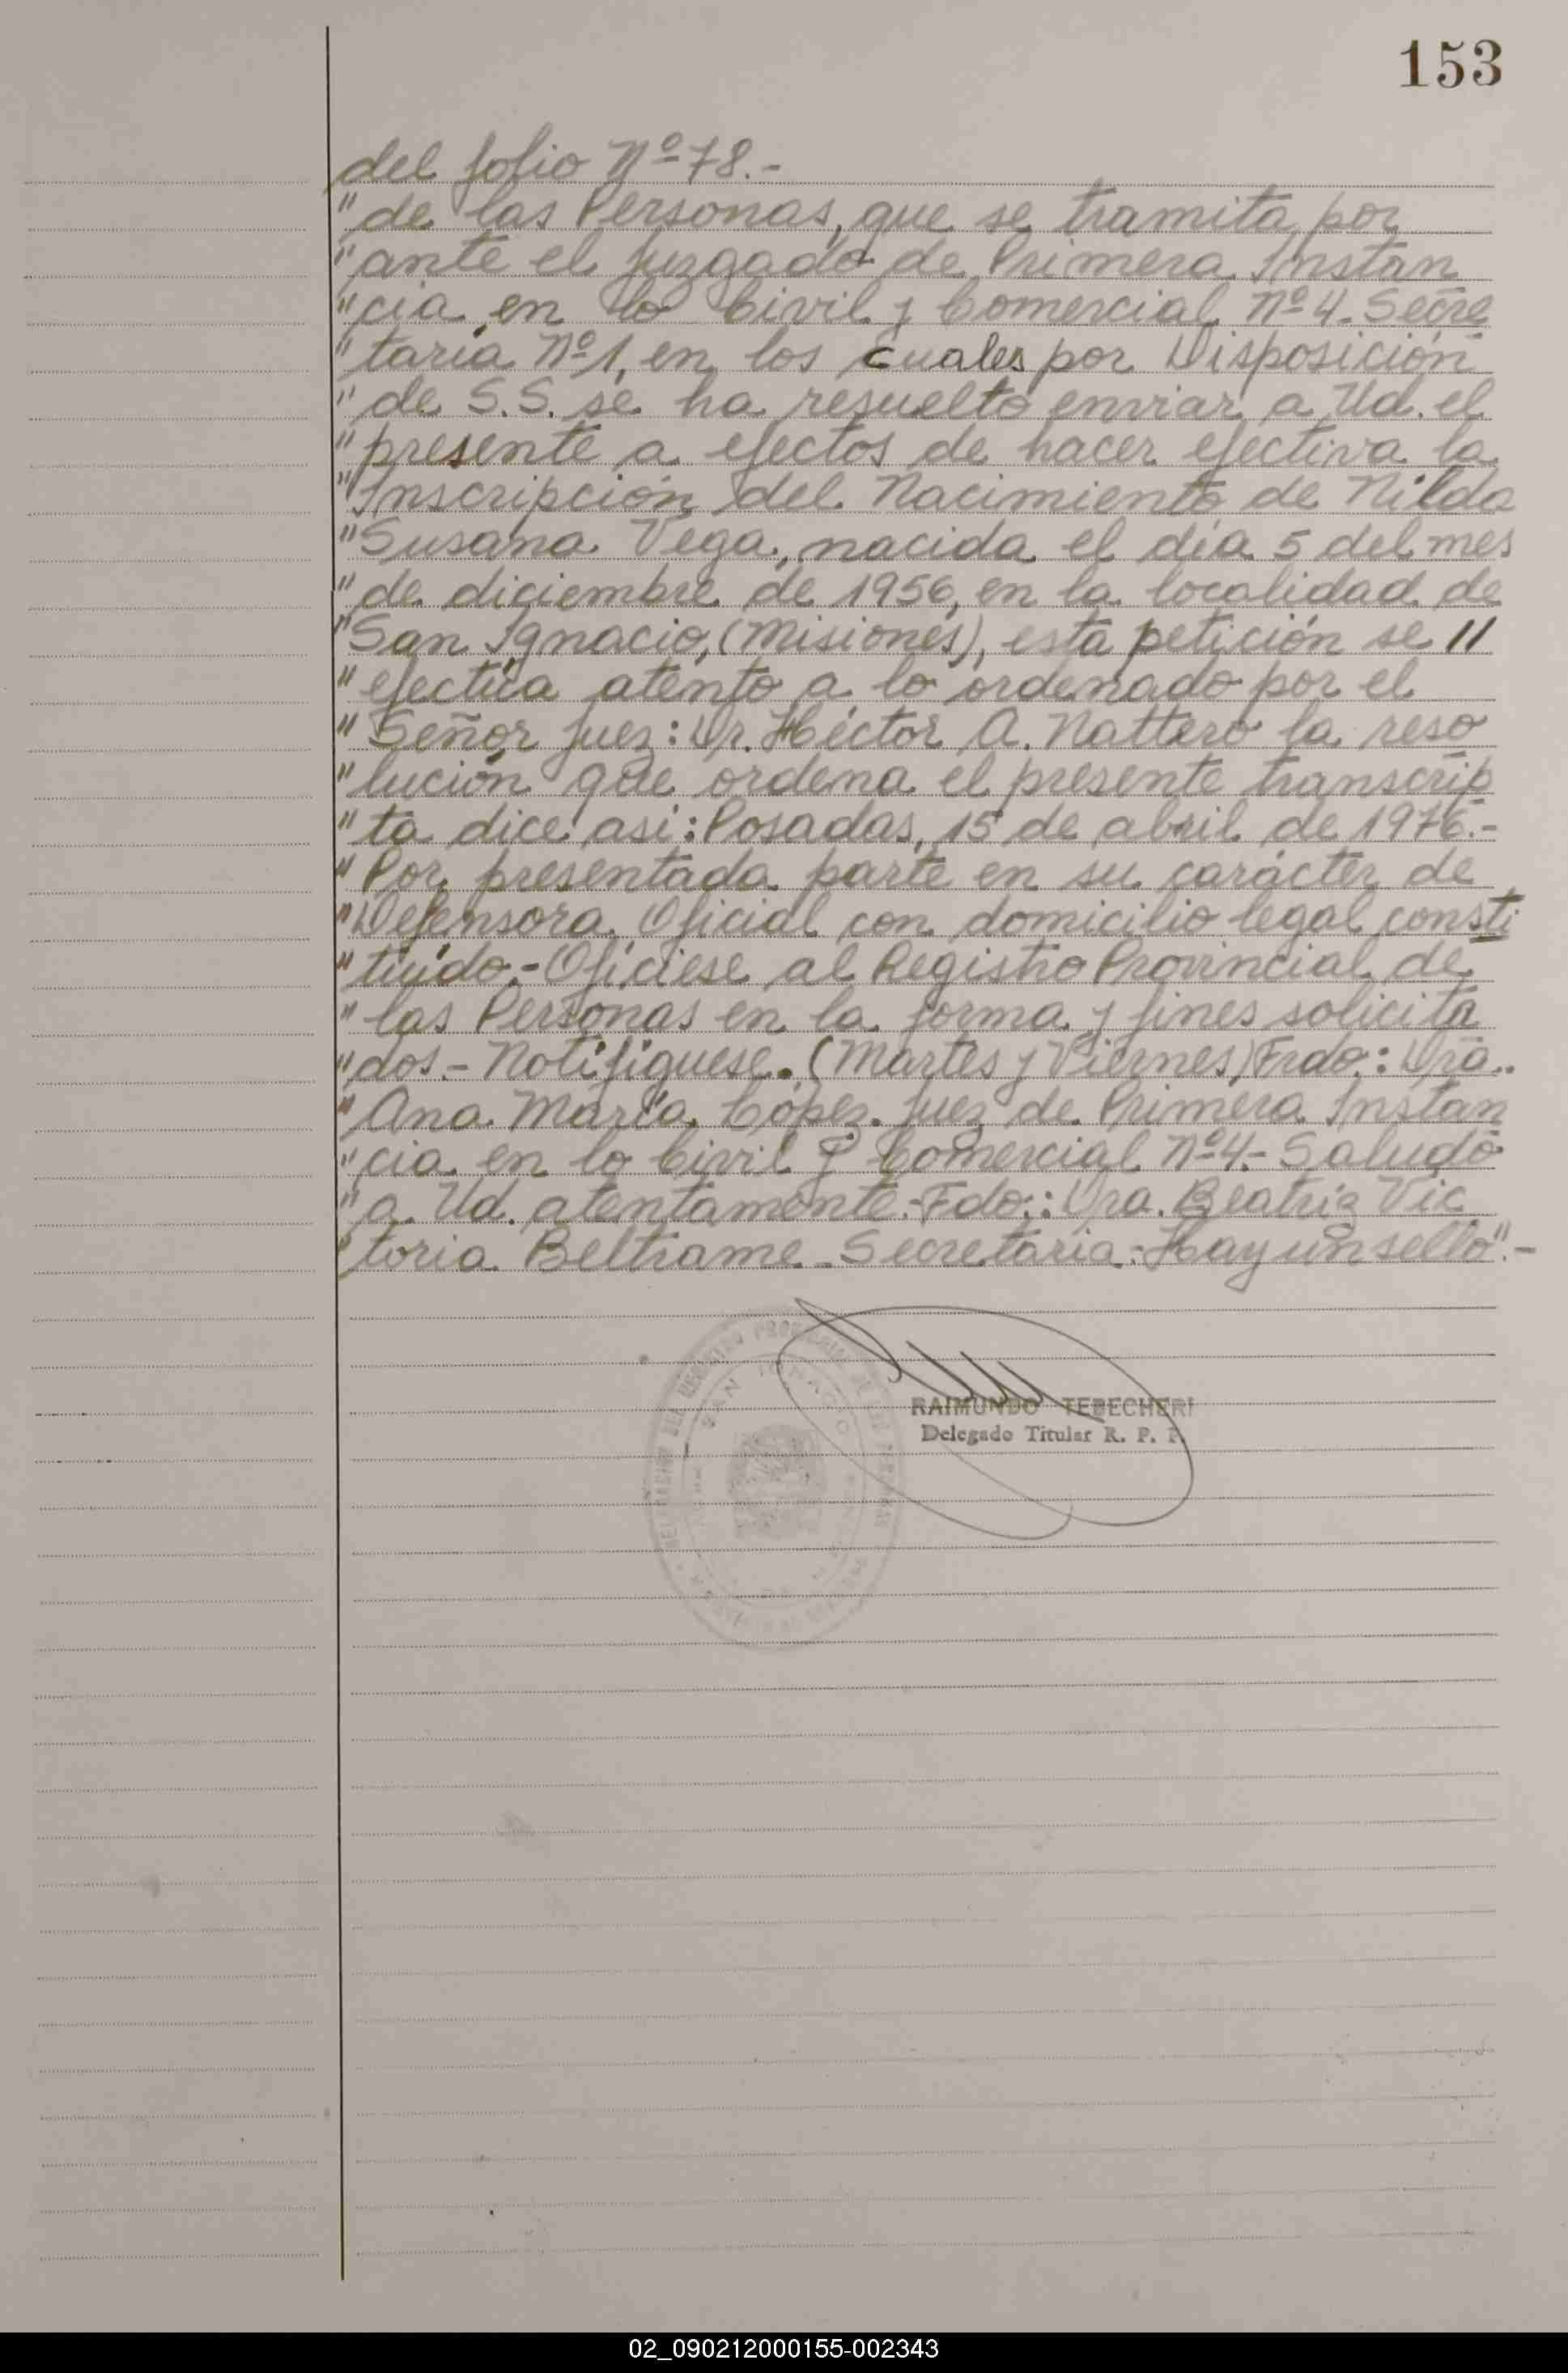 153
del folio Nº 78.-
"de las Personas, que se tramita por
"ante el Juzgado de Primera Instan
"cia en lo Civil y Comercial Nº 4. Secre
"taría Nº 1, en los cuales por Disposición
"de S.S. se ha resuelto enviar a Ud. el
"presente a efectos de hacer efectiva la
"Inscripción del Nacimiento de Nilda
"Susana Vega, nacida el día 5 del mes
"de diciembre de 1956, en la localidad de
"San Ignacio, (Misiones), esta petición se //
"efectúa atento a lo ordenado por el
"Señor Juez: Dr. Héctor A. Nattero la reso
"lución que ordena el presente transcrip
"ta dice así: Posadas, 15 de abril de 1976.-
"Por presentada parte en su carácter de
"Defensora Oficial con domicilio legal consti
"tuído.- Ofíciese al Registro Provincial de
"las Personas en la forma y fines solicita
"dos.- Notifíquese. (Martes y Viernes) Frdo.: Dra..
"Ana María López. Juez de Primera Instan
"cia en lo Civil y Comercial Nº 4.- Saludo
"a Ud. atentamente.- Fdo.: Dra. Beatriz Vic
"toria Beltrame - Secretaria.- Hay un sello".-
SAN IGNACIO
RAIMUNDO TEBECHERI
Delegado Titular R. P. P.
02_090212000155-002343